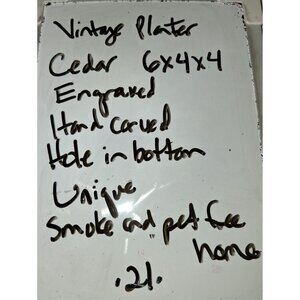 Vintage Planter
Cedar 6x4x4
Engraved
Hand carved
Hole in bottom
Unique
Smoke and pet free
home
.21.